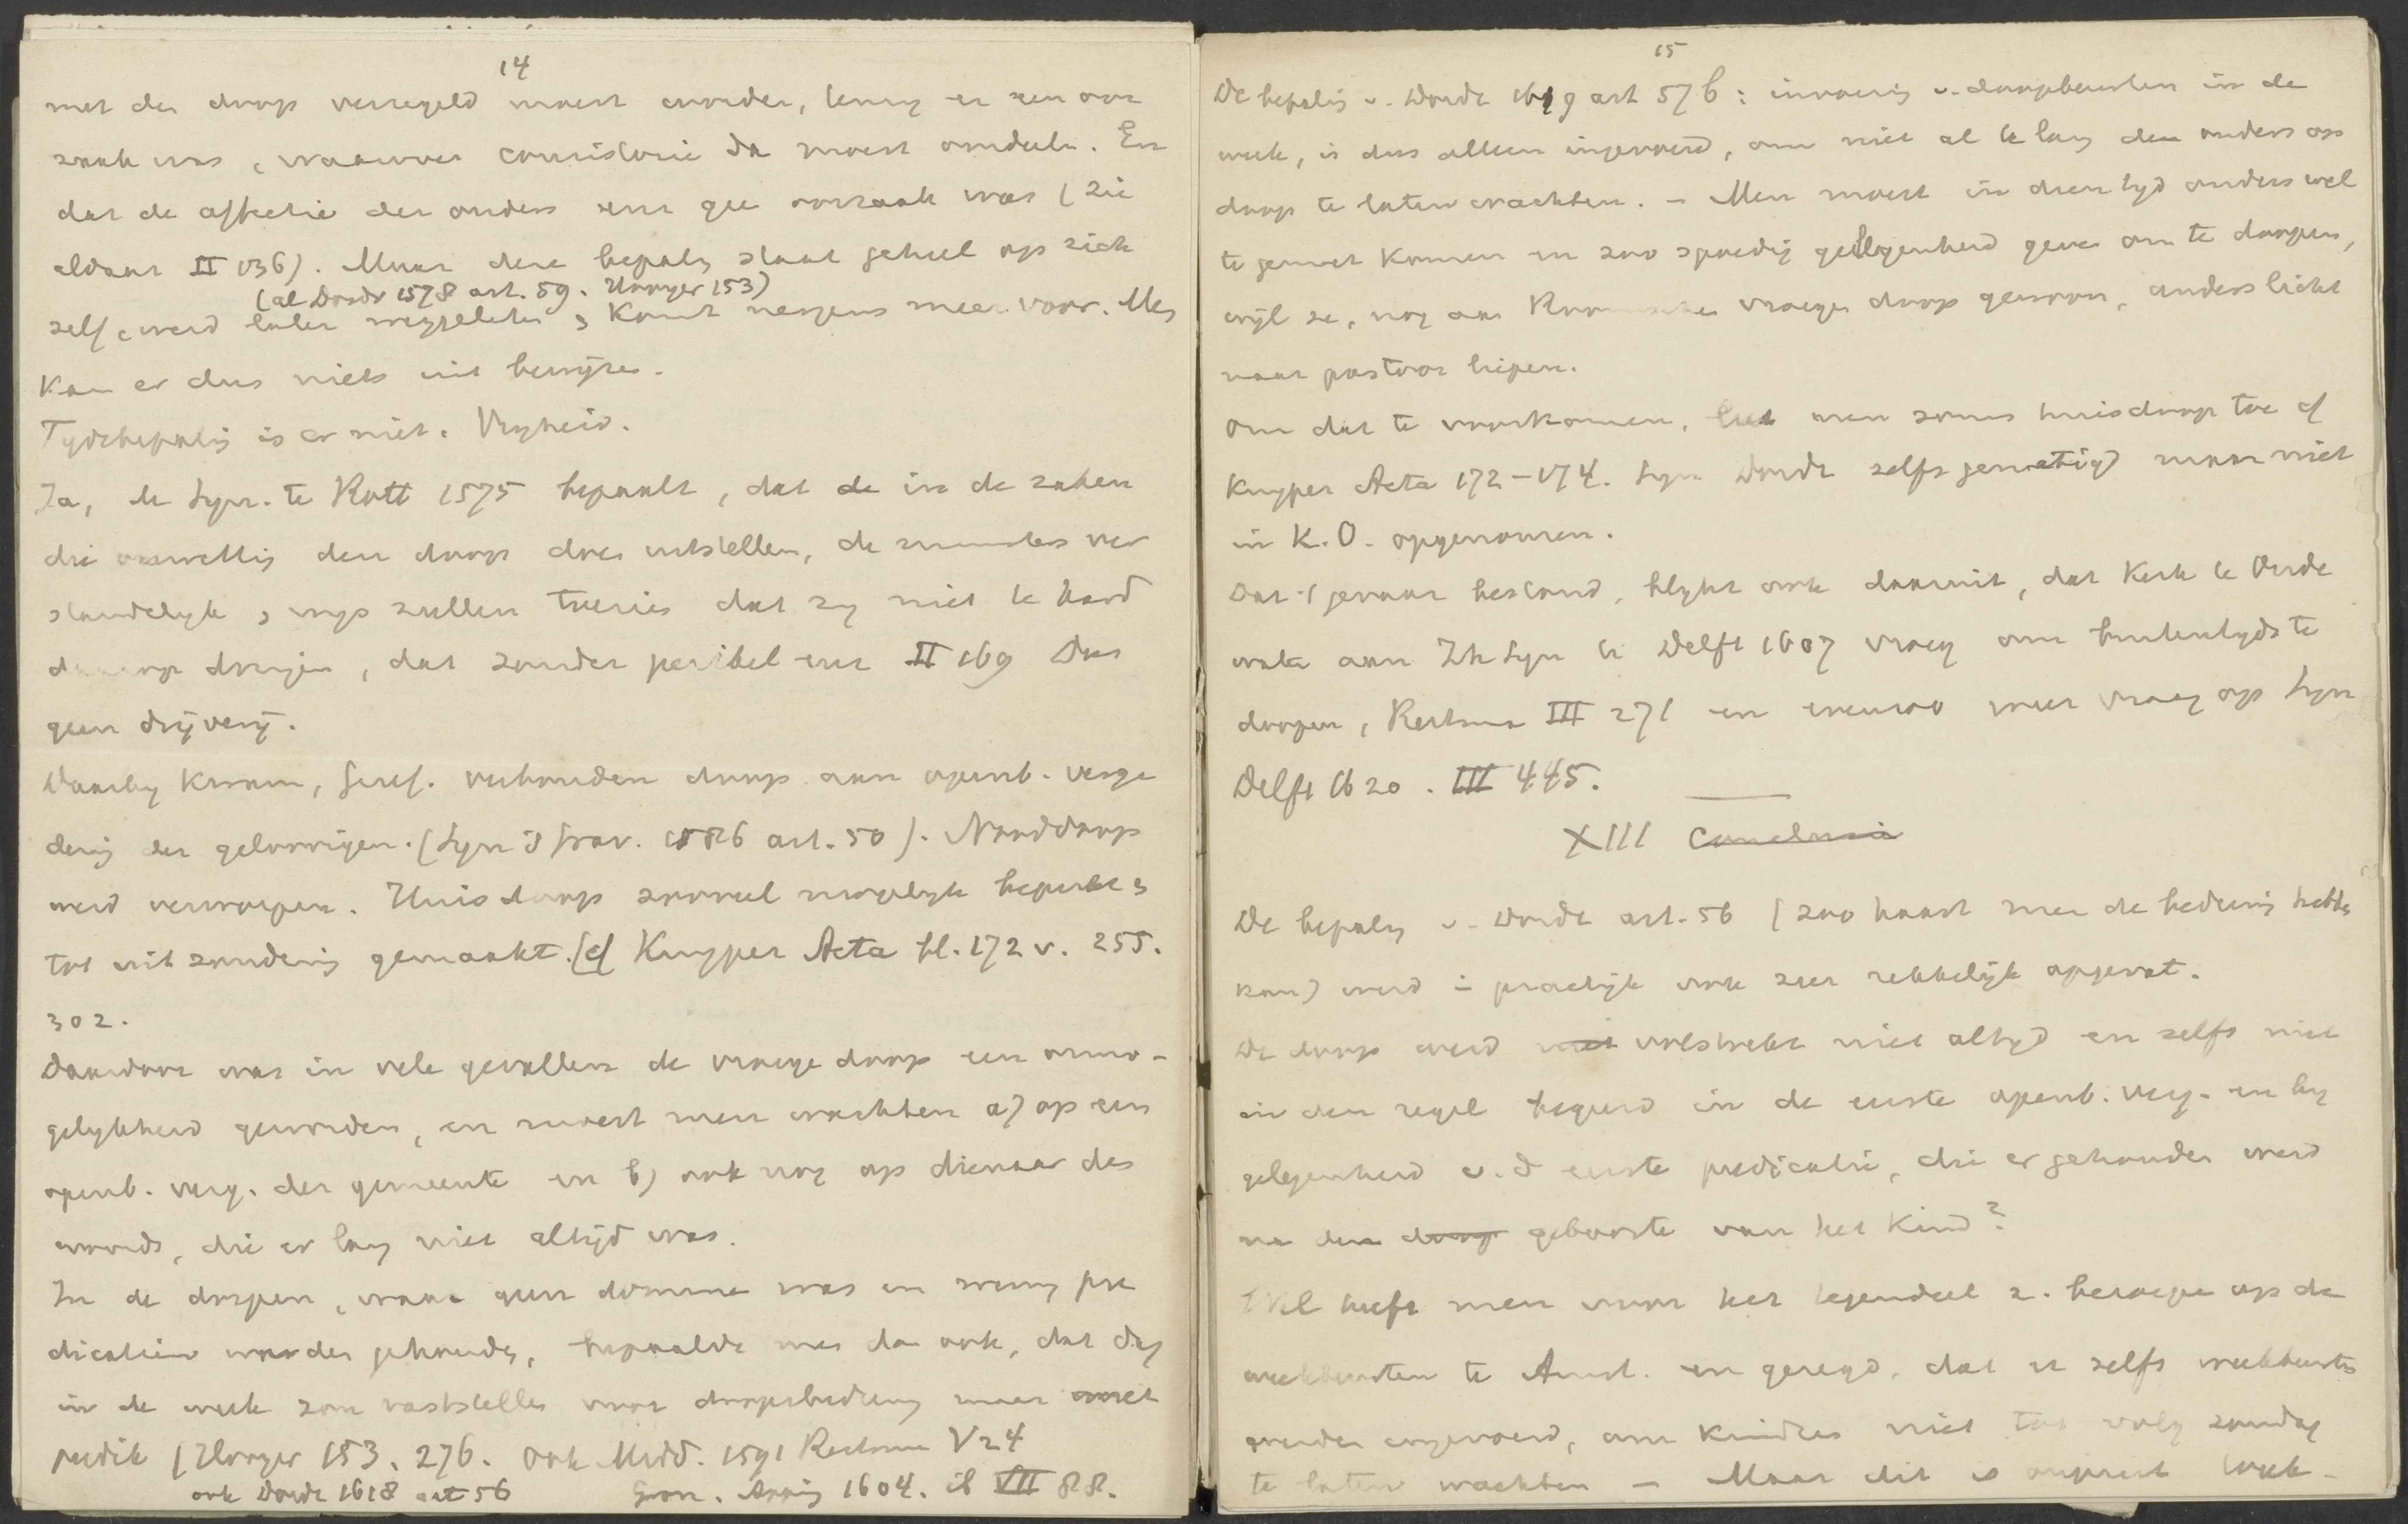 14
met den doop verzegeld moest worden, tenzij er een oor
zaak was, waarover consistorie dan moest oordeelen. En
dat de affectie der ouders enz geen oorzaak was (zie
aldaar II 136). Maar deze bepaling staat geheel op zich
(al Dordr 1578 art. 59. Hooyer 153)
zelf, werd later weggelaten & komt nergens meer voor. Men
kan er dus niets uit bewijzen.
Tijdsbepaling is er niet. Vrijheid.
Ja, de Syn. te Rott 1575 bepaalt, dat de in de zaken
die onwettig den doop doen uitstellen, de ministers ver
standelyk & wys zullen toezien dat zy niet te hard
daarop dringen, dat zonder perikel enz II 169 Dus
geen drijverij.
Daarby kwam, Geref. verbonden doop aan openb. verga
dering der geloovigen. (Syn 's Grav. 1586 art. 50). Nooddoop
werd verworpen. Huisdoop zooveel mogelyk beperkt &
tot uitzondering gemaakt. (cf Kuyper Acta bl. 172 v. 255.
302.
Daardoor was in vele gevallen de vroege doop een onmo-
gelykheid geworden, en moest men wachten a) op een
openb. verg. der gemeente en b) ook nog op dienaar des
woords, die er lang niet altijd was.
In de dorpen, waar geen dominee was en weinig pre
dicatien worden gehouden, bepaalde men dan ook, dat dag
in de week zou vaststellen voor doopsbediening maar met
predik (Hooyer 153, 276. ook Midd. 1591 Reitsma V 24
ook Dordr 1618 art 56 Gron. Apping 1604. ib VII 88.
15
De bepaling v. Dordr 1619 art 57 b: invoering v. doopbeurten in de
week, is dus alleen ingevoerd, om niet al te lang den ouders op
doop te laten wachten. – Men moest in dien tyd ouders wel
te gemoet komen en zoo spoedig gelegenheid geven om te doopen,
wijl ze, nog aan Roomsche vroege doop gewoon, anders licht
naar pastoor liepen.
Om dat te voorkomen, liet men soms huisdoop toe cf
Kuyper Acta 172-174. Syn Dordr zelfs gematigd maar niet
in K.O. opgenomen.
Dat 't gevaar bestond, blykt ook daaruit, dat kerk te Oude
water aan Zh Syn te Delft 1607 vroeg om buitentyds te
doopen, Reitsma III 271 en evenzoo weer vraag op Syn
Delft 1620. III 445.
XIII Conclusie
De bepaling v. Dordr art. 56 (zoo haast men de bediening hebben
kan) werd in practijk ook zeer rekkelijk opgevat.
De doop werd niet volstrekt niet altijd en zelfs niet
in den regel begeerd in de eerste openb. verg. en by
gelegenheid v. d eerste predicatie, die er gehouden werd
na den doop geboorte van het kind?
Wel heeft men voor het tegendeel z. beroepen op de
weekbeurten te Amst. en gezegd, dat er zelfs weekbeurten
werden ingevoerd, om kinders niet tot volg zondag
te laten wachten – Maar dit is onjuist Week-